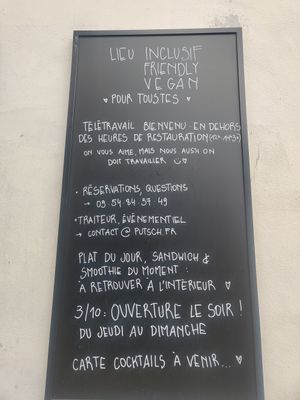 LIEU INCLUSIF
FRIENDLY
VEGAN
♥ POUR TOUSTES ♥
TÉLÉTRAVAIL BIENVENU EN DEHORS
DES HEURES DE RESTAURATION
ON VOUS AIME, MAIS NOUS AUSSI ON
DOIT TRAVAILLER
• RÉSERVATIONS, QUESTIONS
→ 09.54.84.57.49
• TRAITEUR, ÉVÉNEMENTIEL
→ CONTACT@PUTSCH.FR
PLAT DU JOUR, SANDWICH &
SMOOTHIE DU MOMENT :
À RETROUVER À L'INTÉRIEUR ♥
3/10 : OUVERTURE LE SOIR !
DU JEUDI AU DIMANCHE
CARTE COCKTAILS À VENIR... ♥